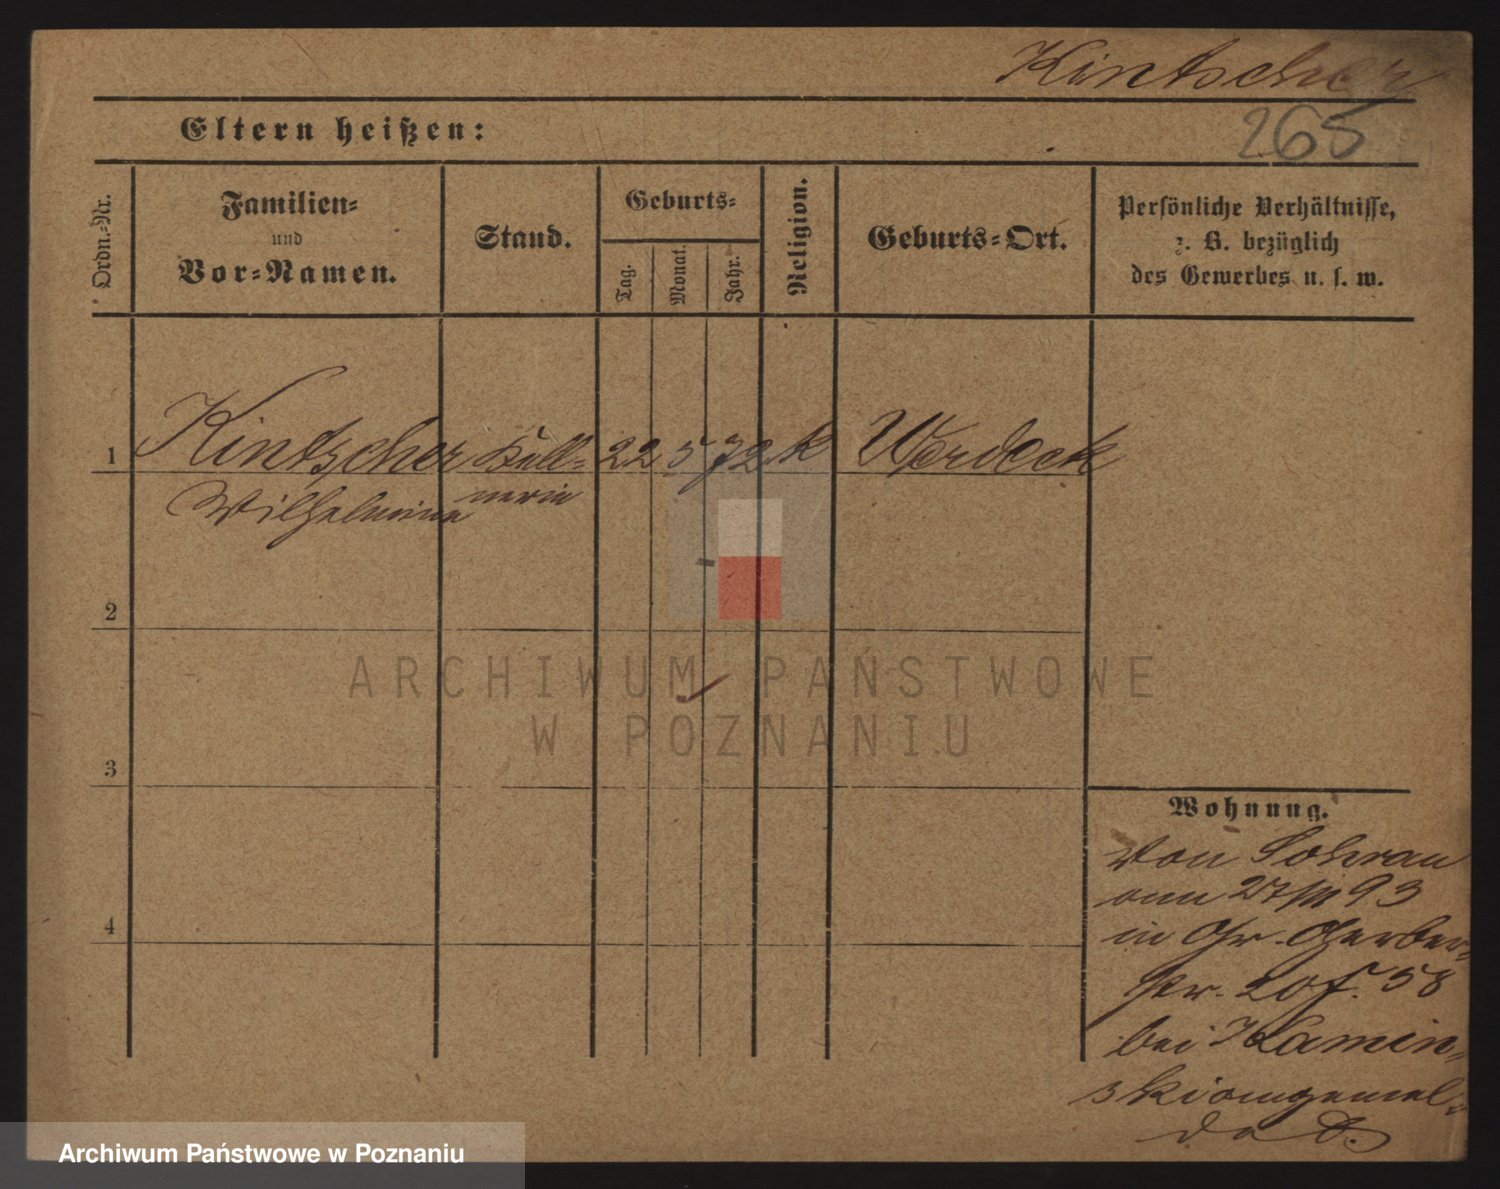 Kintscher
265
Eltern heißen:
Ordn.-Nr.
Familien-
und
Vor-Namen.
Stand.
Geburts-
Tag.
Monat.
Jahr.
Religion.
Geburts-Ort.
Persönliche Verhältnisse,
z. B. bezüglich
des Gewerbes u. s. w.
1 Kintscher Kell- 22 5 72 k Werdeck
Wilhelmine nerin
2
3
4
Wohnung.
Von Sohrau
am 27/III 93
in Gr. Gerber-
str. 20 f. 58
bei Kamin-
ski angemel-
det.
ARCHIWUM PAŃSTWOWE
W POZNANIU
Archiwum Państwowe w Poznaniu